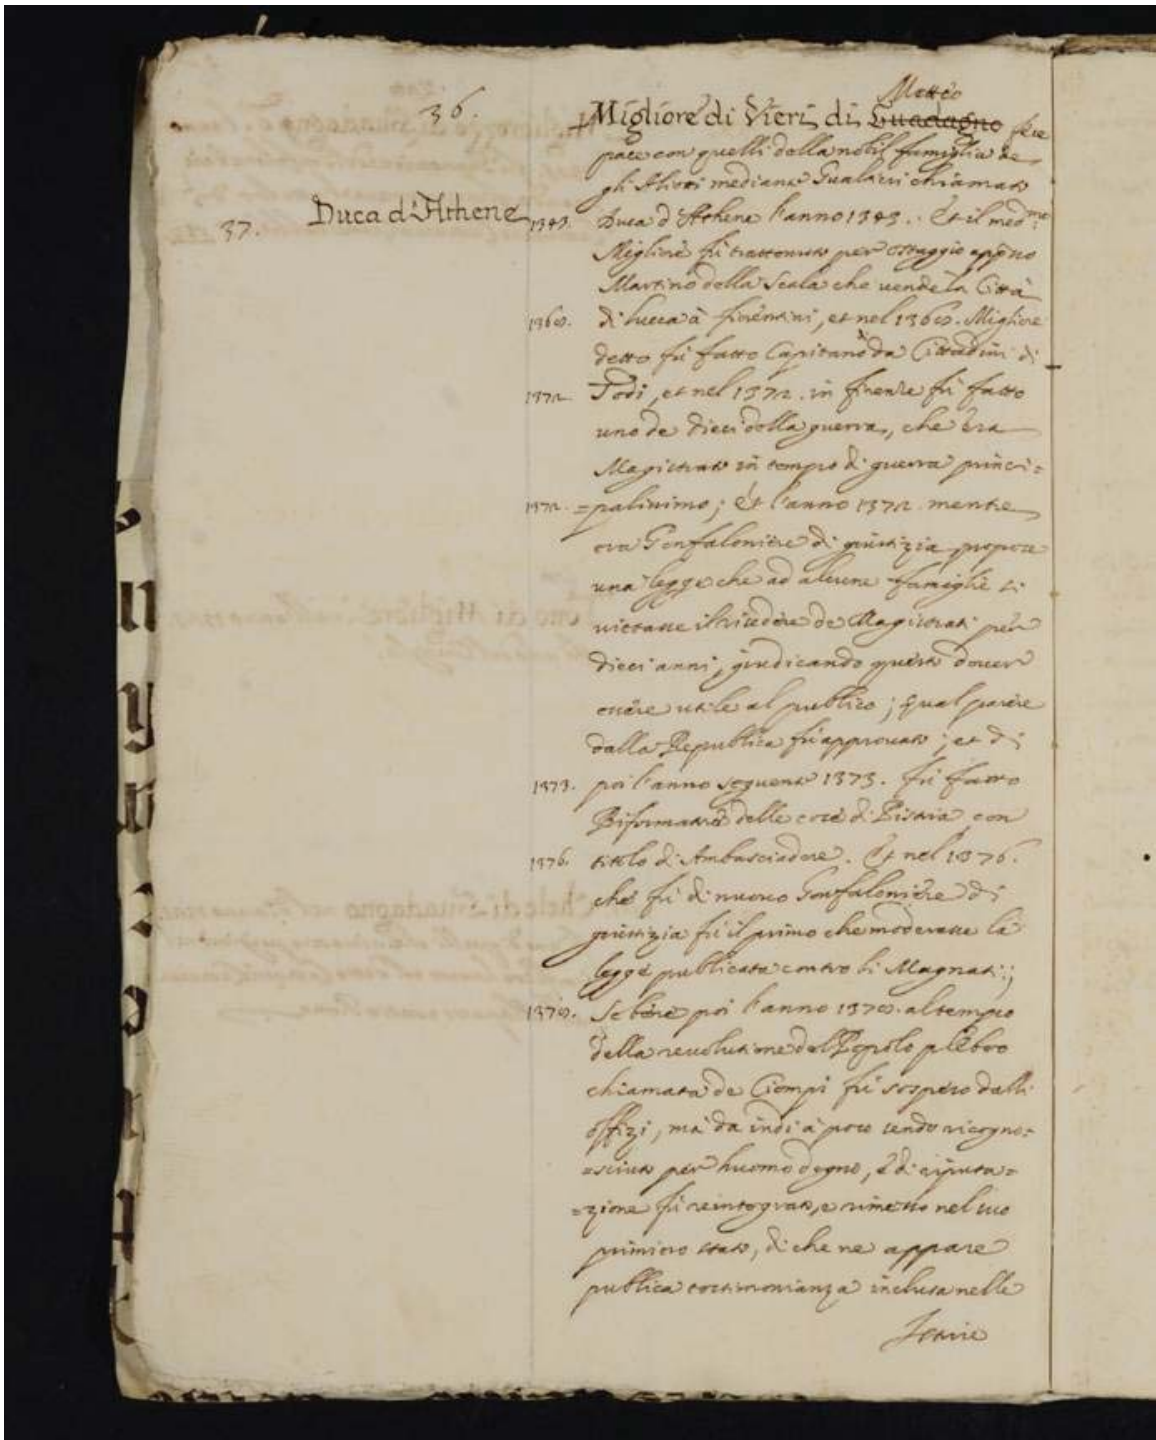 36.
Matteo
Migliore di Vieri di Guadagno fece
pace con quelli della nobil famiglia de
gli mediante Gualtieri chiamato
37. Duca d'Athene 1343. Duca d'Athene l'anno 1343. Et il med.mo
Migliore fù trattenuto per ostaggio app.sso
Martino della Scala che vendè la Città
1368. di Lucca à fiorentini, et nel 1368. Migliore
detto fù fatto Capitano da Cittadini di
1372. Todi, et nel 1372. in firenze fù fatto
uno de Dieci della guerra, che era
Magistrato in tempo di guerra princi=
1372. =palissimo; Et l'anno 1372. mentre
era Gonfaloniere di giustizia propose
una legge che ad alcune famiglie si
vietasse il risedere de Magistrati per
dieci anni, giudicando questo dover
essere utile al publico; qual parere
dalla Republica fù approvato; et di
1373. poi l'anno seguente 1373. fù fatto
Riformatore delle cose di Pistoia con
1376. titolo di Ambasciadore. Et nel 1376.
che fù di nuovo Gonfaloniere di
giustizia fù il primo che moderasse la
legge publicata contro li Magnati;
1378. Se bene poi l'anno 1378. al tempo
della revolutione del Popolo plebeo
chiamata de Ciompi fù sospeso dalli
offizi, mà da indi à poco sendo ricogno=
=sciuto per huomo degno, e di riputa=
=zione fù reintegrato, e rimesso nel suo
primiero stato, di che ne appare
publica testimonianza inclusa nelle